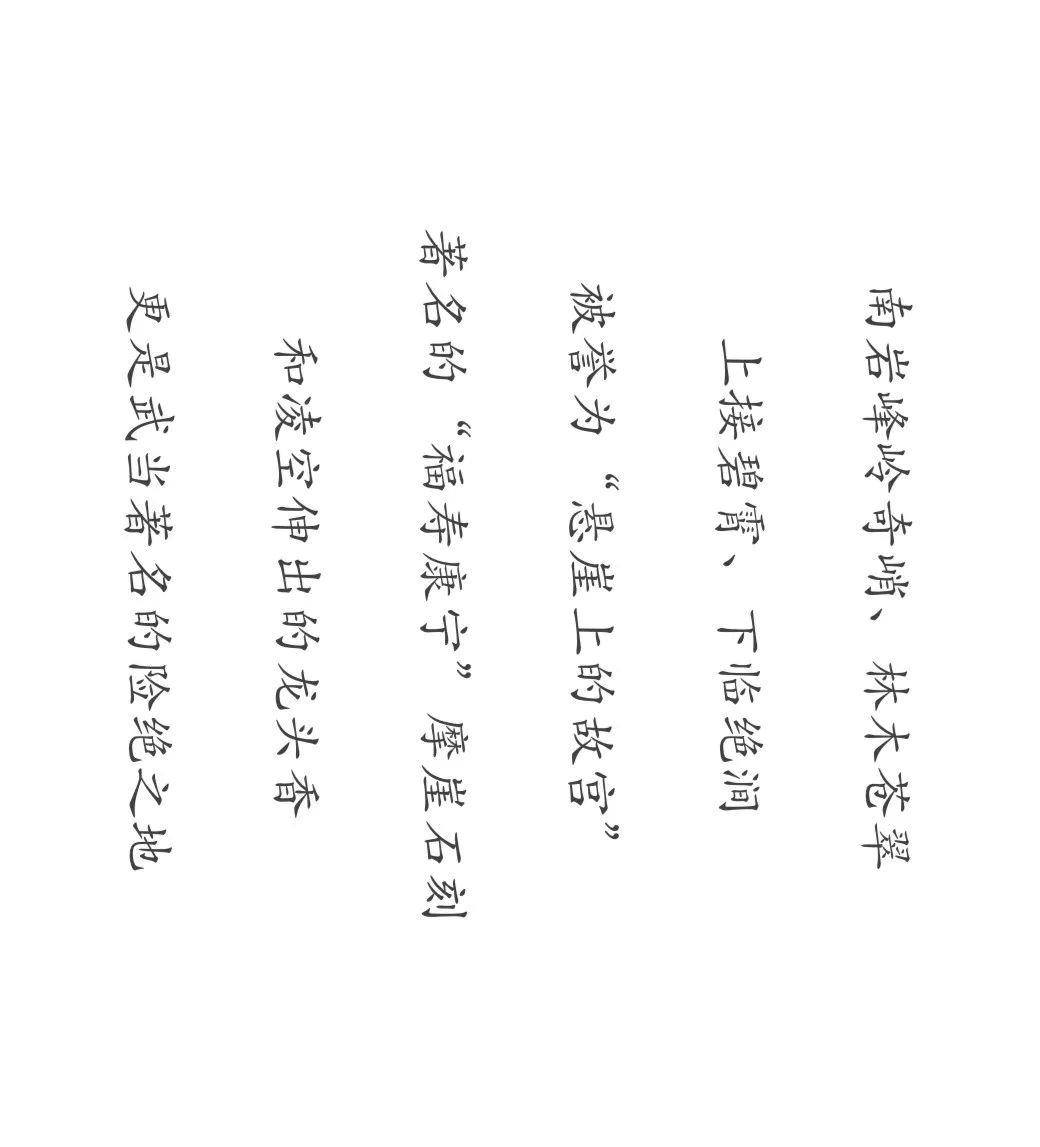 南岩峰岭奇峭、林木苍翠
上接碧霄、下临绝涧
被誉为“悬崖上的故宫”
著名的“福寿康宁”摩崖石刻
和凌空伸出的龙头香
更是武当著名的险绝之地